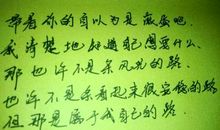 带着你的自以为是藏蛋吧，
我清楚地知道自己想要什么，
那也许不是条风光的路，
也许不是条看起来很安稳的路，
但那是属于我自己的路.